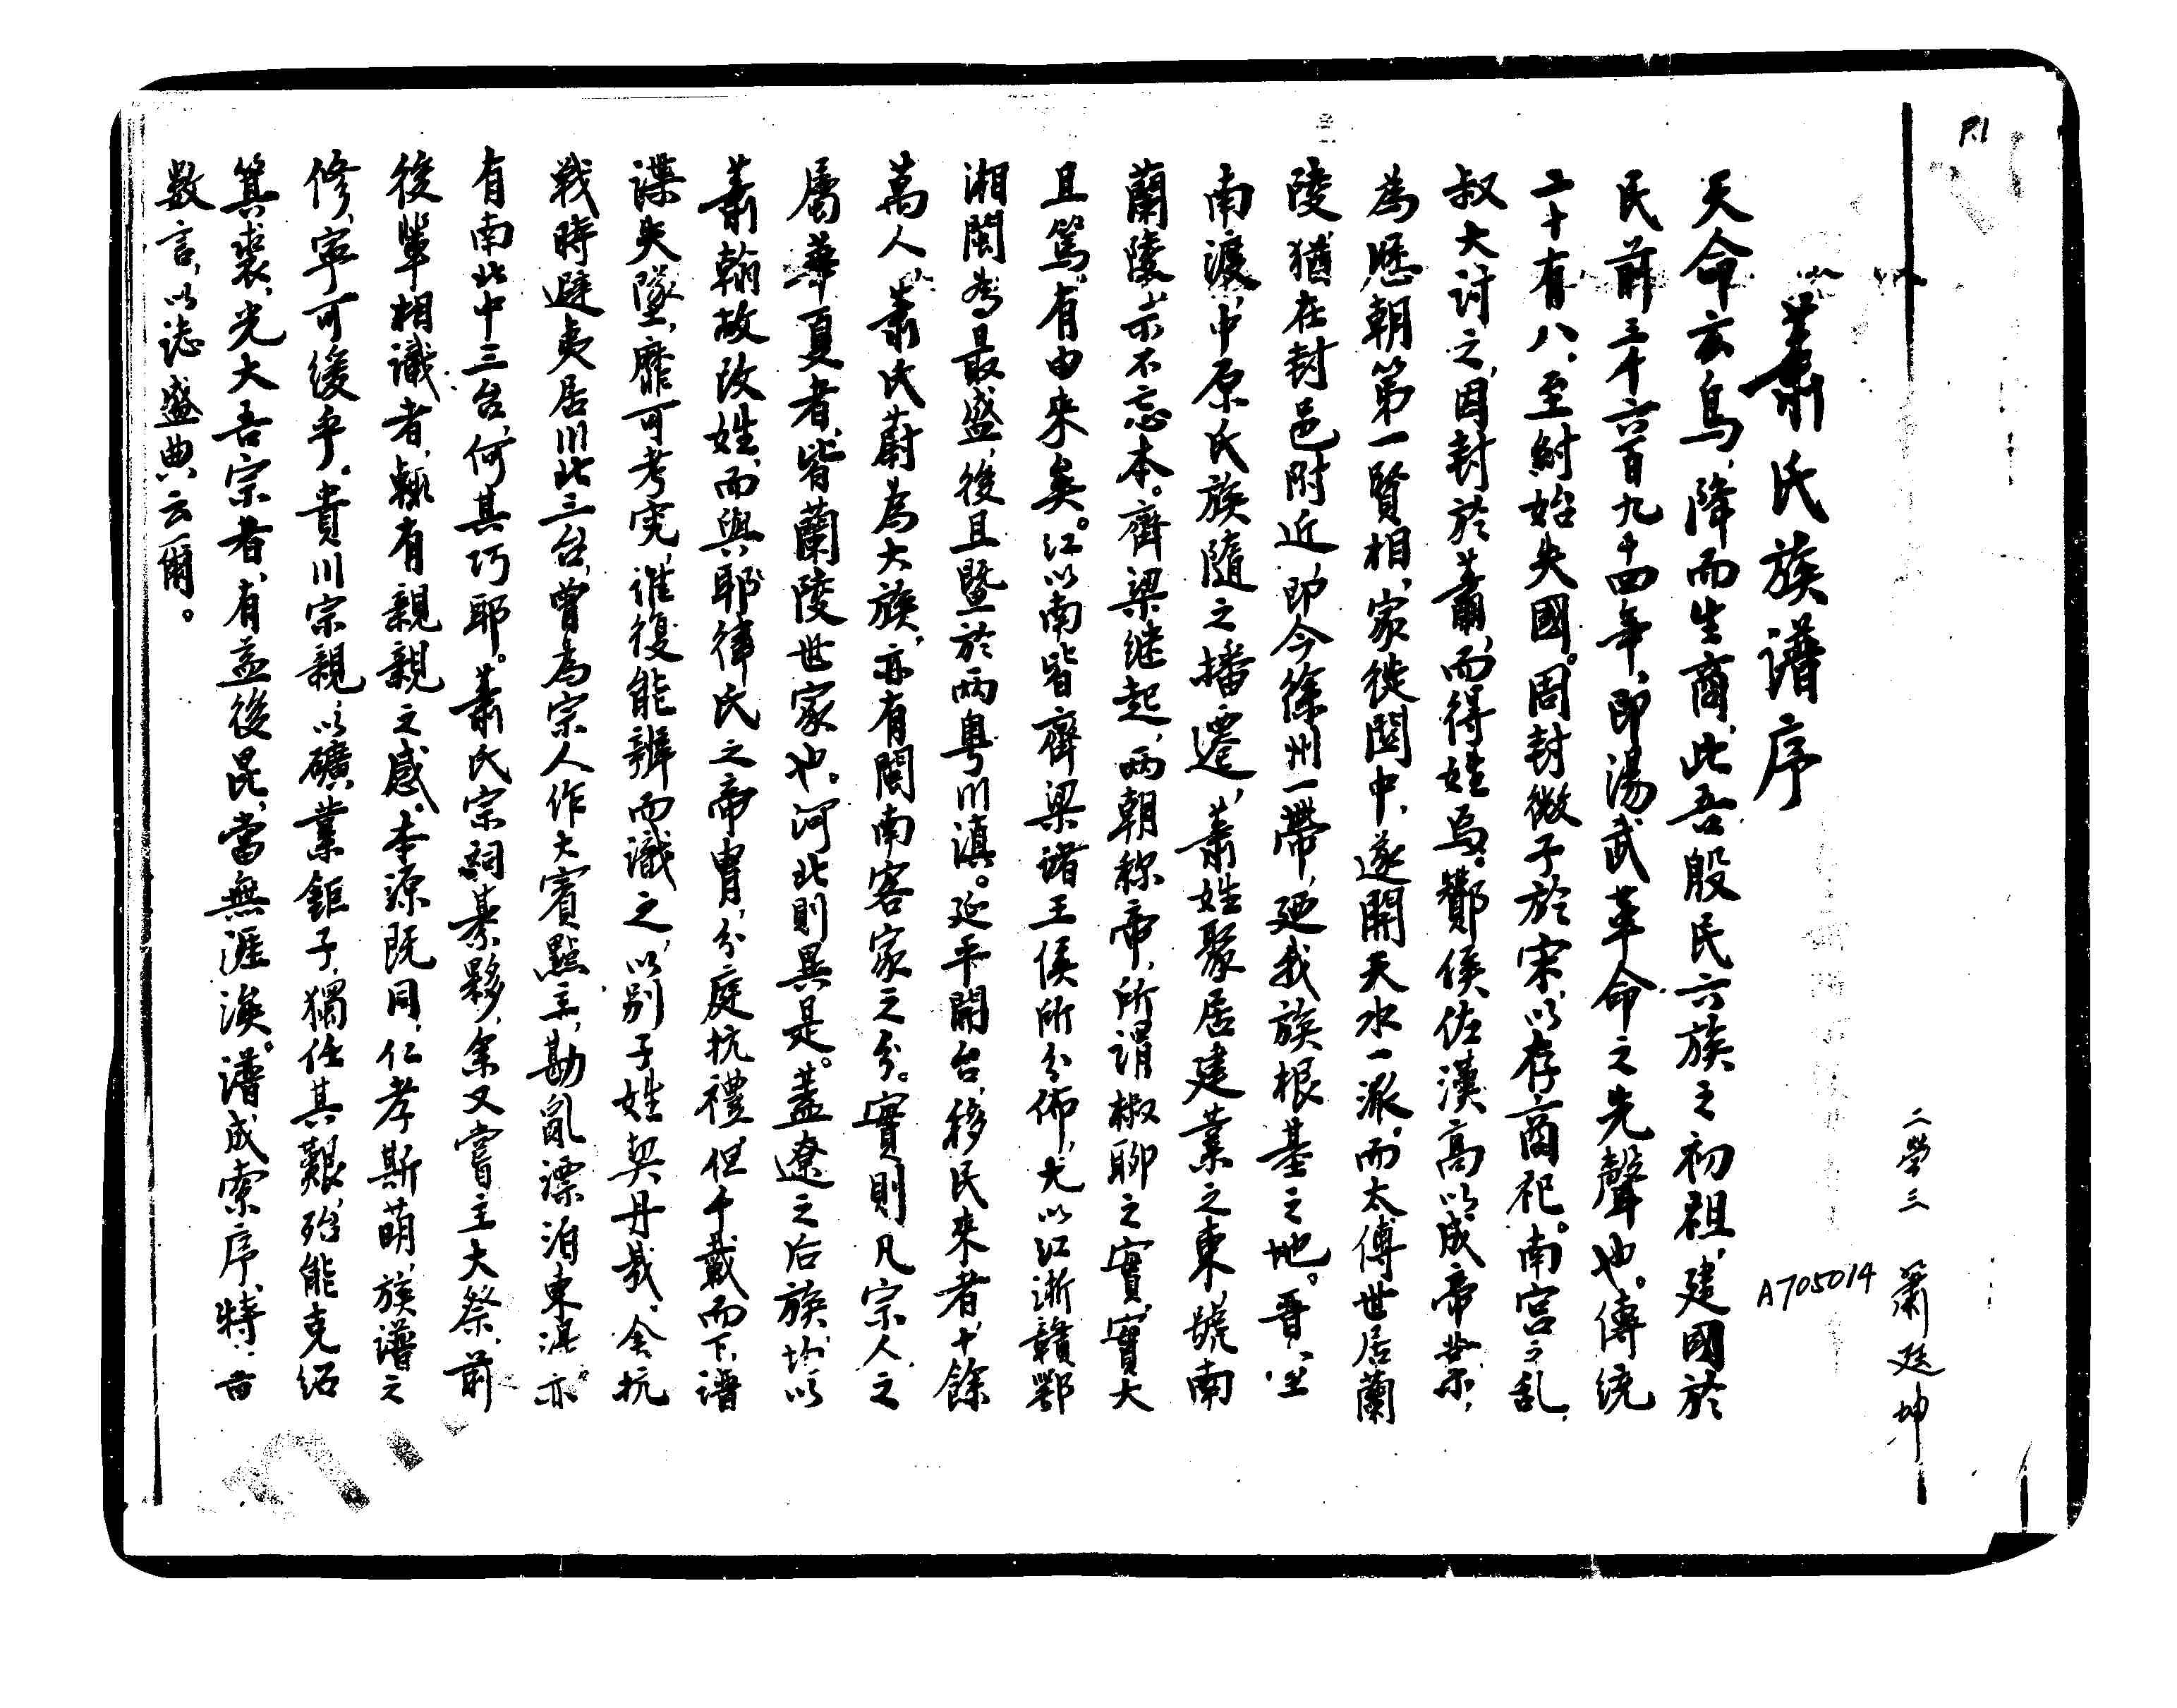 P.1
二學三 蕭廷坤
A705014
蕭氏族譜序
天命玄鳥,降而生商,此吾殷民六族之初祖,建國於
民前三千六百九十四年,即湯武革命之先聲也。傳統
二十有八,至紂始失國。周封微子於宋,以存商祀。南宮之乱,
叔大討之,因封於蕭,而得姓焉。酇侯佐漢高以成帝業,
為歷朝第一賢相,家徙関中,遂開天水一派。而太傅世居蘭
陵,猶在封邑附近,即今徐州一帶,廼我族根基之地。晋室
南渡,中原氏族隨之播遷,蕭姓聚居建業之東,號南
蘭陵,示不忘本。齊梁继起,兩朝称帝,所謂椒聊之實,實大
且篤,有由来矣。江以南皆齊梁諸王侯所分佈,尤以江浙贛鄂
湘閩為最盛,後且暨於兩粤川滇。延平開台,移民来者,十餘
萬人,蕭氏蔚為大族,亦有閩南客家之分。實則凡宗人之
屬華夏者,皆蘭陵世家也。河北則異是。蓋遼之后族,均以
蕭翰故改姓,而與耶律氏之帝胄,分庭抗禮,但千載而下,譜
諜失墜,靡可考究,谁復能辨而識之,以别子姓契丹哉。余抗
戰時避夷居川北三台,曾為宗人作大賓點主,勘亂漂泊東溟,亦
有南北中三台,何其巧耶。蕭氏宗祠綦夥,余又嘗主大祭,前
後輩相識者,輒有親親之感。本源既同,仁孝斯萌,族譜之
修,寧可缓乎。貴川宗親,以礦業鉅子,獨任其艱,殆能克绍
箕裘,光大吾宗者,有益後昆,當無涯涘。譜成索序,特
數言,以誌盛典云爾。